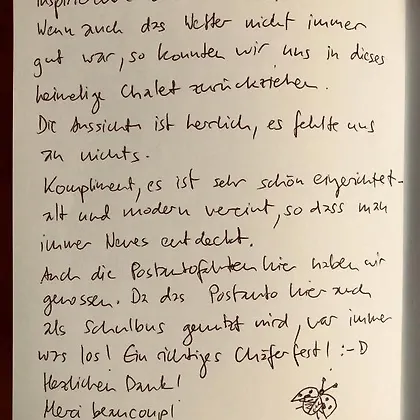 Wenn auch das Wetter nicht immer
gut war, so konnten wir uns in dieses
heimelige Chalet zurückziehen.
Die Aussicht ist herrlich, es fehlte uns
an nichts.
Kompliment, es ist sehr schön eingerichtet -
alt und modern vereint, so dass man
immer Neues entdeckt.
Auch die Postautofahrten hier haben wir
genossen. Da das Postauto hier auch
als Schulbus genutzt wird, war immer
was los! Ein richtiges Chäferfest! :-D
Herzlichen Dank!
Merci beaucoup!